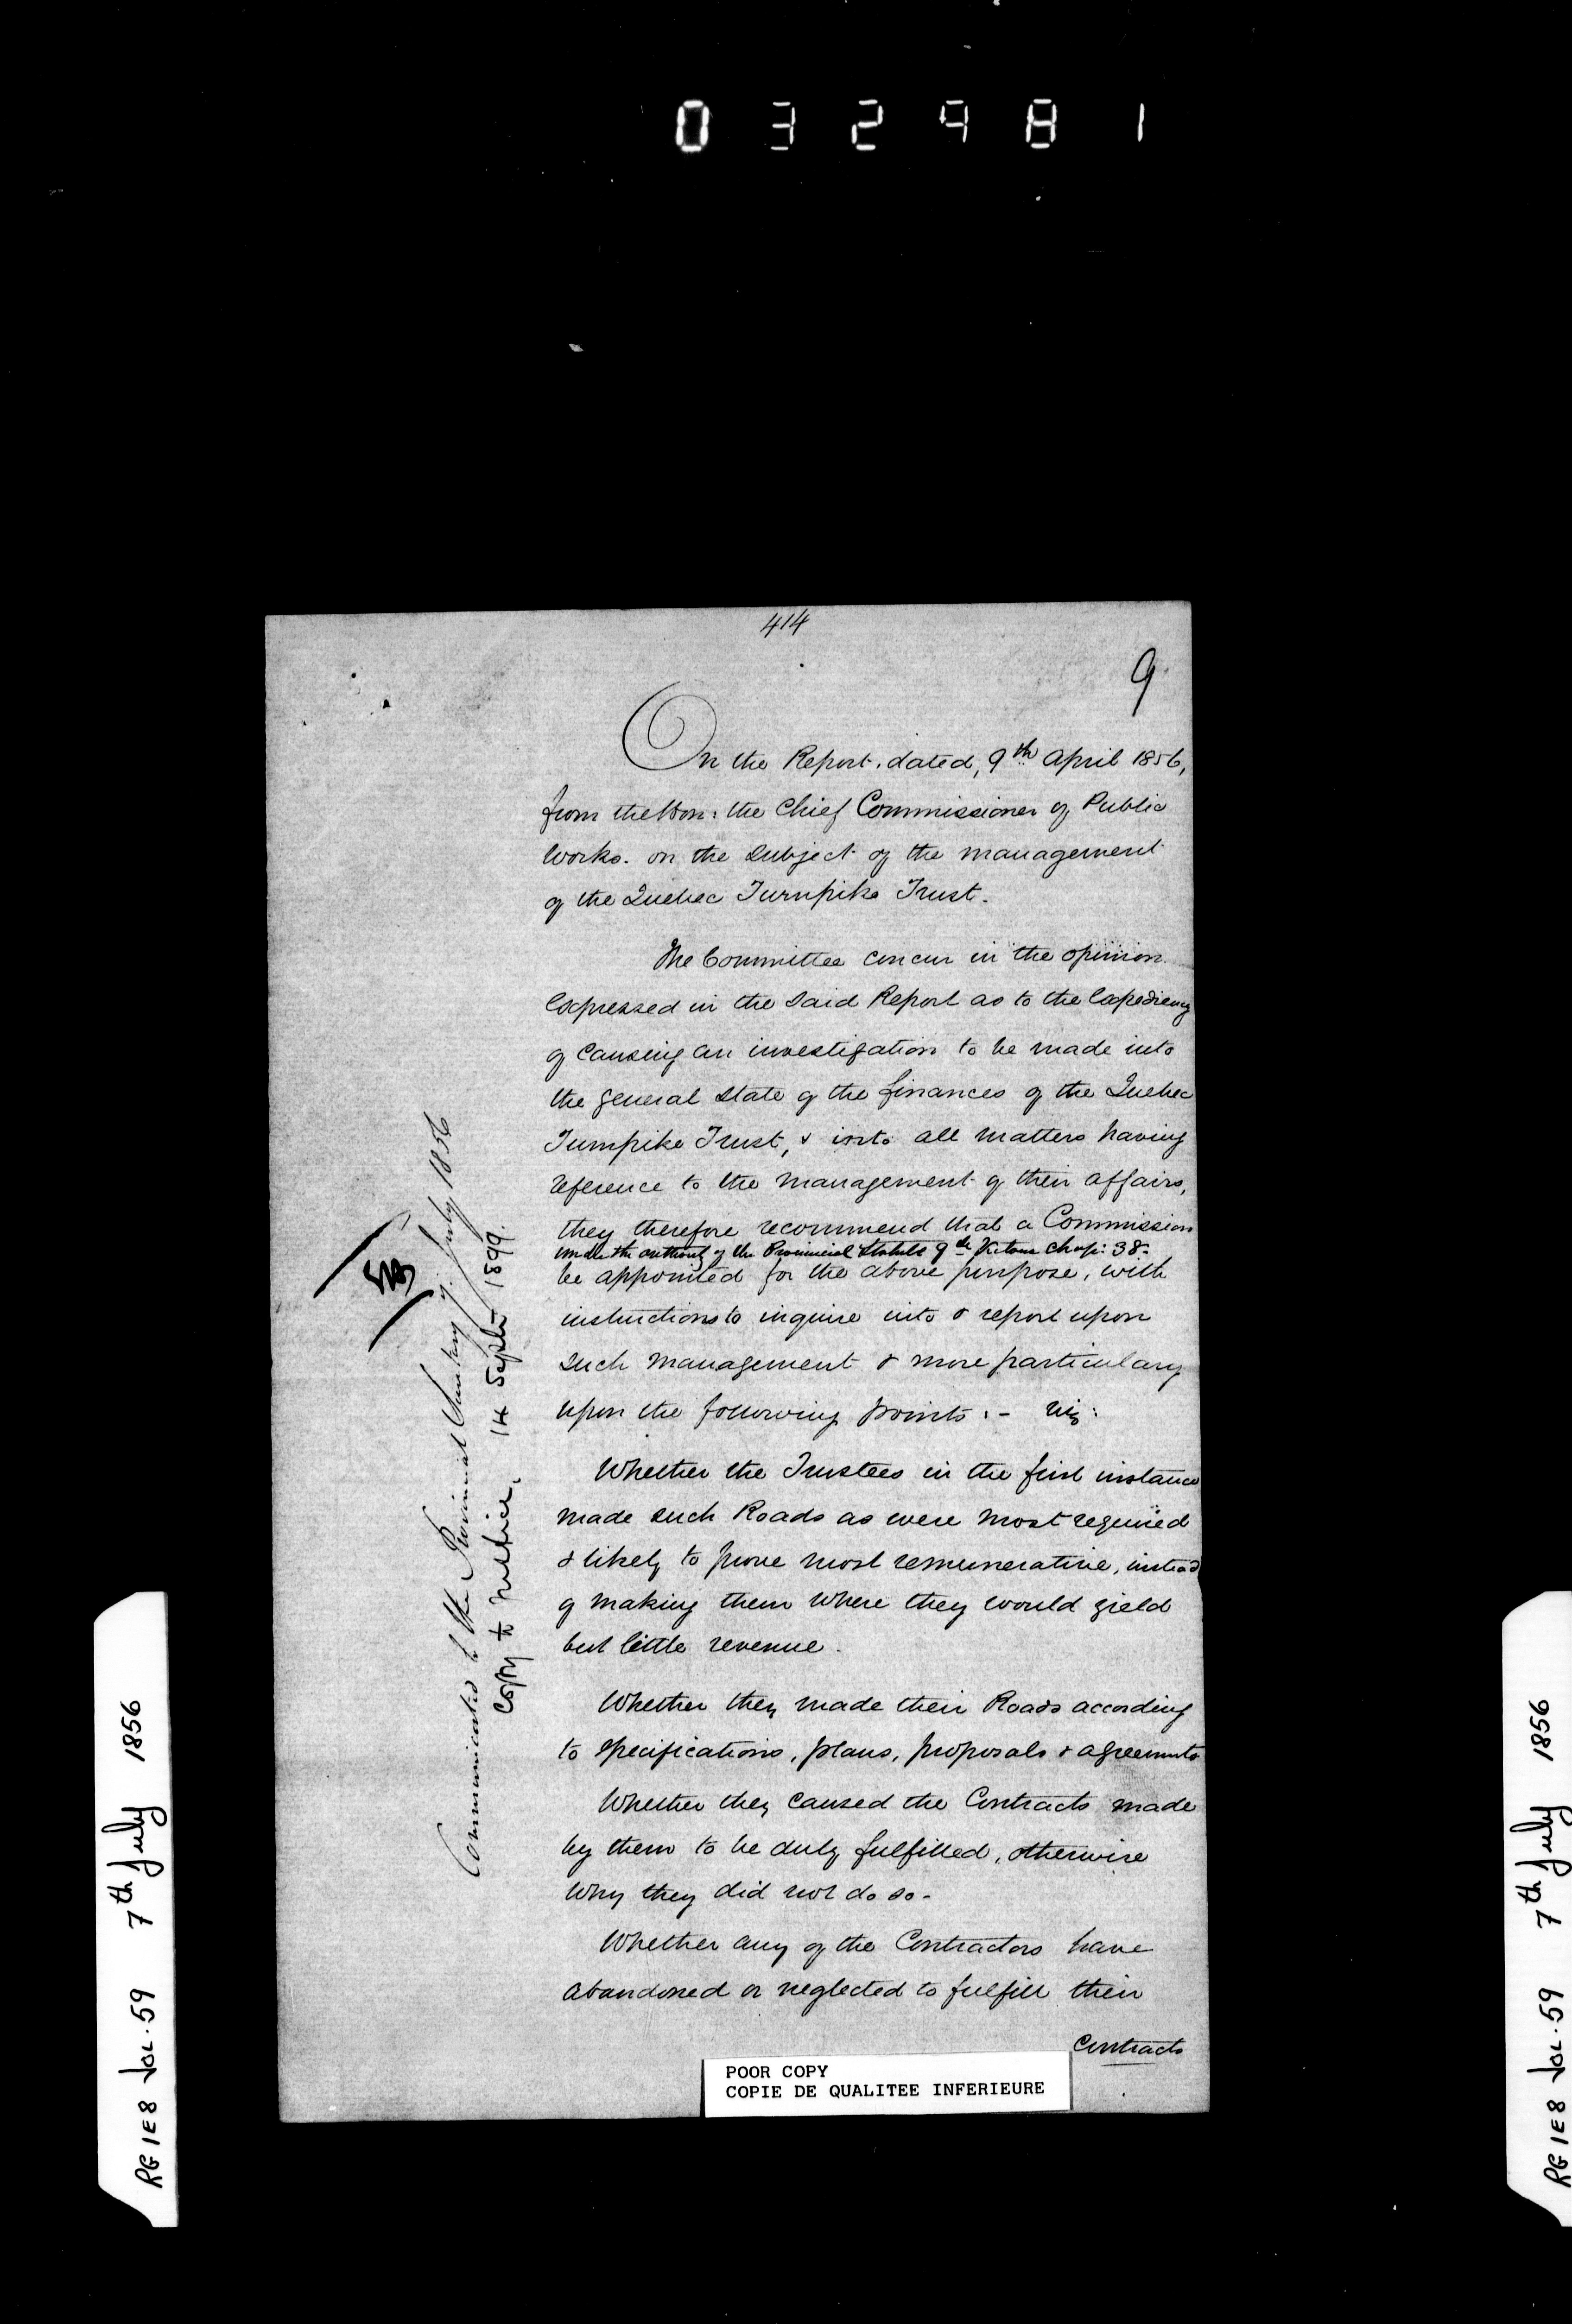 032981
414
9
On the Report, dated, 9th April 1856,
from the Hon: the Chief Commissioner of Public
Works. on the subject of the management
of the Quebec Turnpike Trust.
The Committee concur in the opinion
expressed in the said Report as to the expediency
of causing an investigation to be made into
the general state of the finances of the Quebec
Turnpike Trust, & into all matters having
reference to the management of their affairs,
they therefore recommend that a Commission
under the authority of the Provincial Statute 9th Victoria Chap: 38-
be appointed for the above purpose, with
instructions to inquire into & report upon
such management & more particulary
upon the following points :- viz:
Whether the Trustees in the first instance
made such Roads as were most required
& likely to prove most remunerative, instead
of making them where they would yield
but little revenue.
Whether they made their Roads according
to specifications, plans, proposals & agreements
Whether they caused the Contracts made
by them to be duly fulfilled, otherwise
why they did not do so-
Whether any of the Contractors have
abandoned or neglected to fulfill their
Contracts
Communicated to the Provincial Secretary 7. July 1856
Copy to Justice, 14 Septr 1899.
POOR COPY
COPIE DE QUALITEE INFERIEURE
RG 1 E8 Vol. 59 7th July 1856
RG 1 E8 Vol. 59 7th July 1856